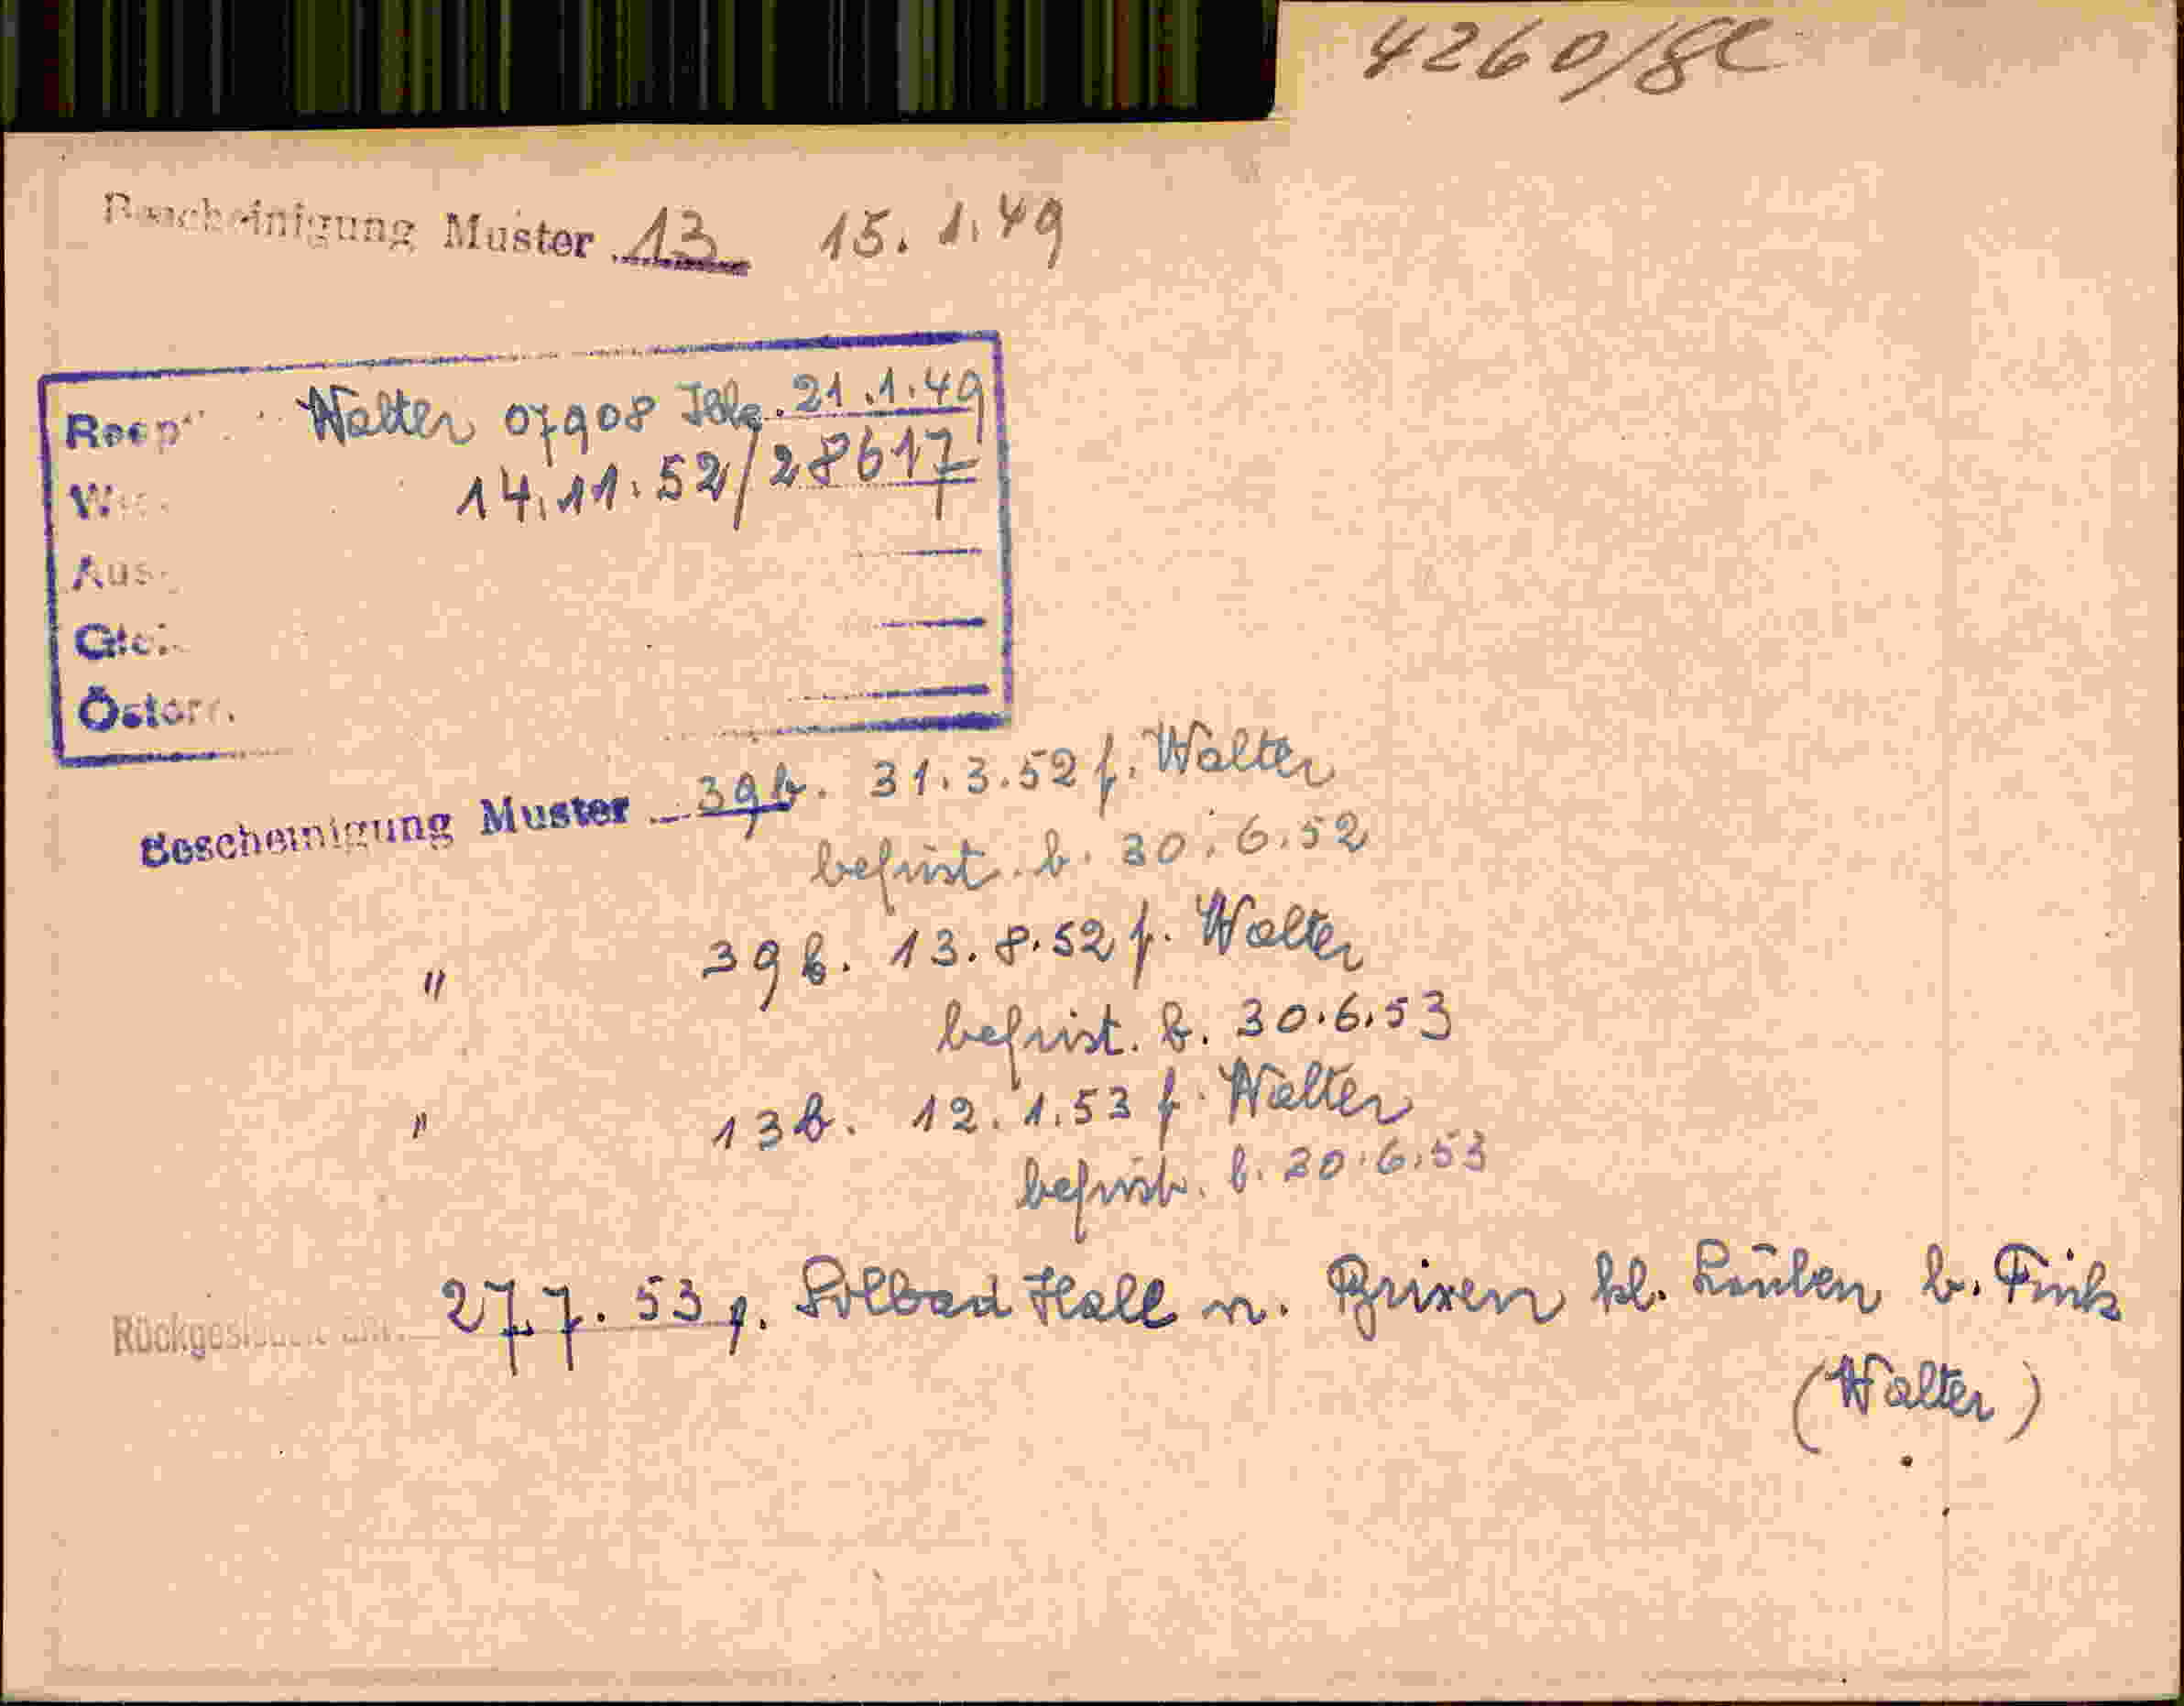 4260/
Bescheinigung Muster 13 15.1.49
Walter 07908 21.1.49
14.11.52/28617
Aus
Österr.
Bescheinigung Muster 39b. 31.3.52 f. Walter
befrist. b. 30.6.52
" 39b. 13.8.52 f. Walter
befrist. b. 30.6.53
" 13b. 12.1.53 f. Walter
befrist. b. 30.6.53
27.7.53 v. Solbad Hall n. Brixen kl. Lauben b. Fink
(Walter)